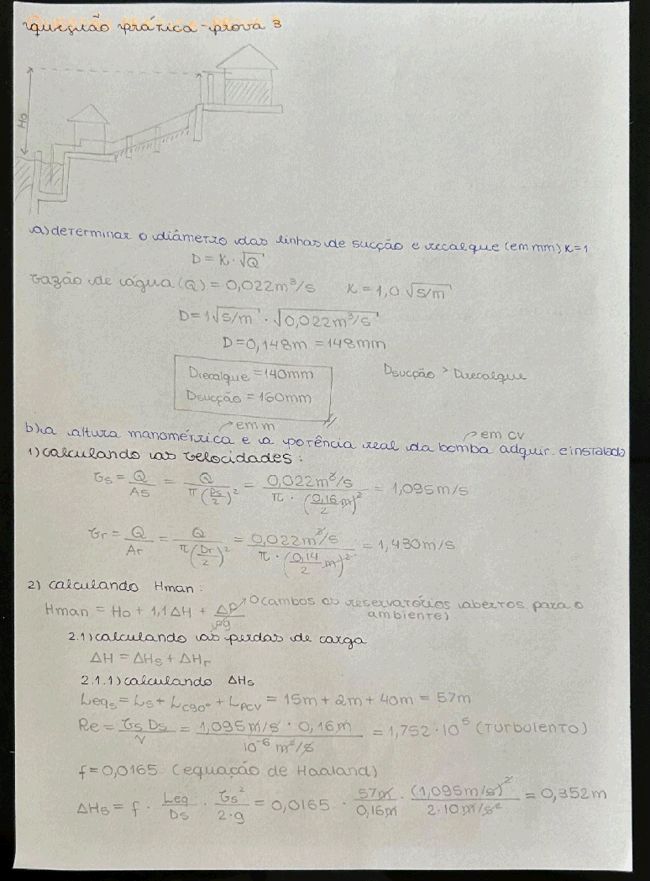 questão prática - prova 3
Ho
a) determinar o diâmetro das linhas de sucção e recalque (em mm) K=1
D = K · √Q
vazão de água (Q) = 0,022m³/s K = 1,0 √s/m
D = 1√s/m · √0,022m³/s
D = 0,148m = 148mm
Drecalque = 140mm
Dsucção = 160mm
Dsucção > Drecalque
em m
em cv
b) a altura manométrica e a potência real da bomba adquir. e instalada
1) calculando as velocidades:
vs = Q/As = Q/π(Ds/2)² = 0,022m³/s / π · (0,16/2 m)² = 1,095m/s
vr = Q/Ar = Q/π(Dr/2)² = 0,022m³/s / π · (0,14/2 m)² = 1,430m/s
2) calculando Hman:
Hman = Ho + 1,1ΔH + ΔP/ρg → 0 (ambos os reservatórios abertos para o
ambiente)
2.1) calculando as perdas de carga
ΔH = ΔHs + ΔHr
2.1.1) calculando ΔHs
Leqs = Ls + LC90° + LPCV = 15m + 2m + 40m = 57m
Re = vs Ds/ν = 1,095m/s · 0,16m / 10⁻⁶ m²/s = 1,752 · 10⁵ (turbulento)
f = 0,0165 (equação de Haaland)
ΔHs = f · Leq/Ds · vs²/2·g = 0,0165 · 57m/0,16m · (1,095m/s)²/2·10m/s² = 0,352m